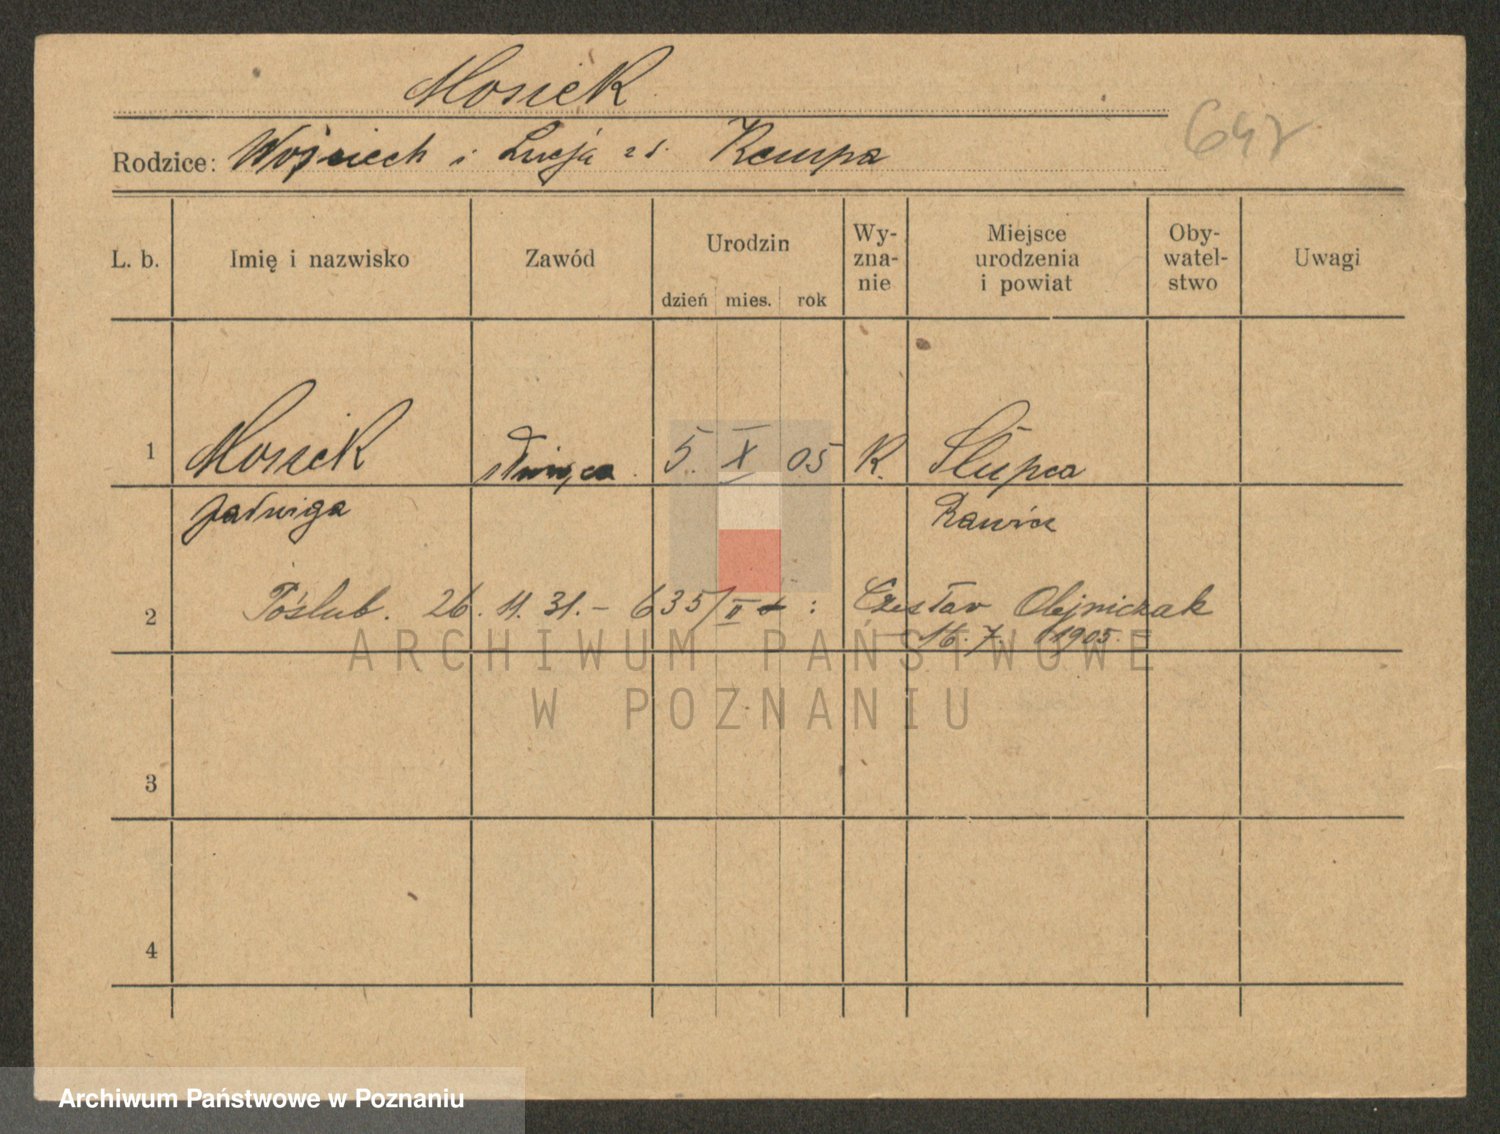 Mosiek
Rodzice: Wojciech i Łucja zd. Kempa
L. b. Imię i nazwisko Zawód Urodzin dzień mies. rok Wy- zna- nie Miejsce urodzenia i powiat Oby- watel- stwo Uwagi
1 Mosiek służąca 5. X 05 K. Słupca
Jadwiga Rawicz
2 Poślub. 26. 11. 31. – 635/II : Czesław Olejniczak
16. 7. 1905.
ARCHIWUM PAŃSTWOWE
W POZNANIU
3
4
Archiwum Państwowe w Poznaniu